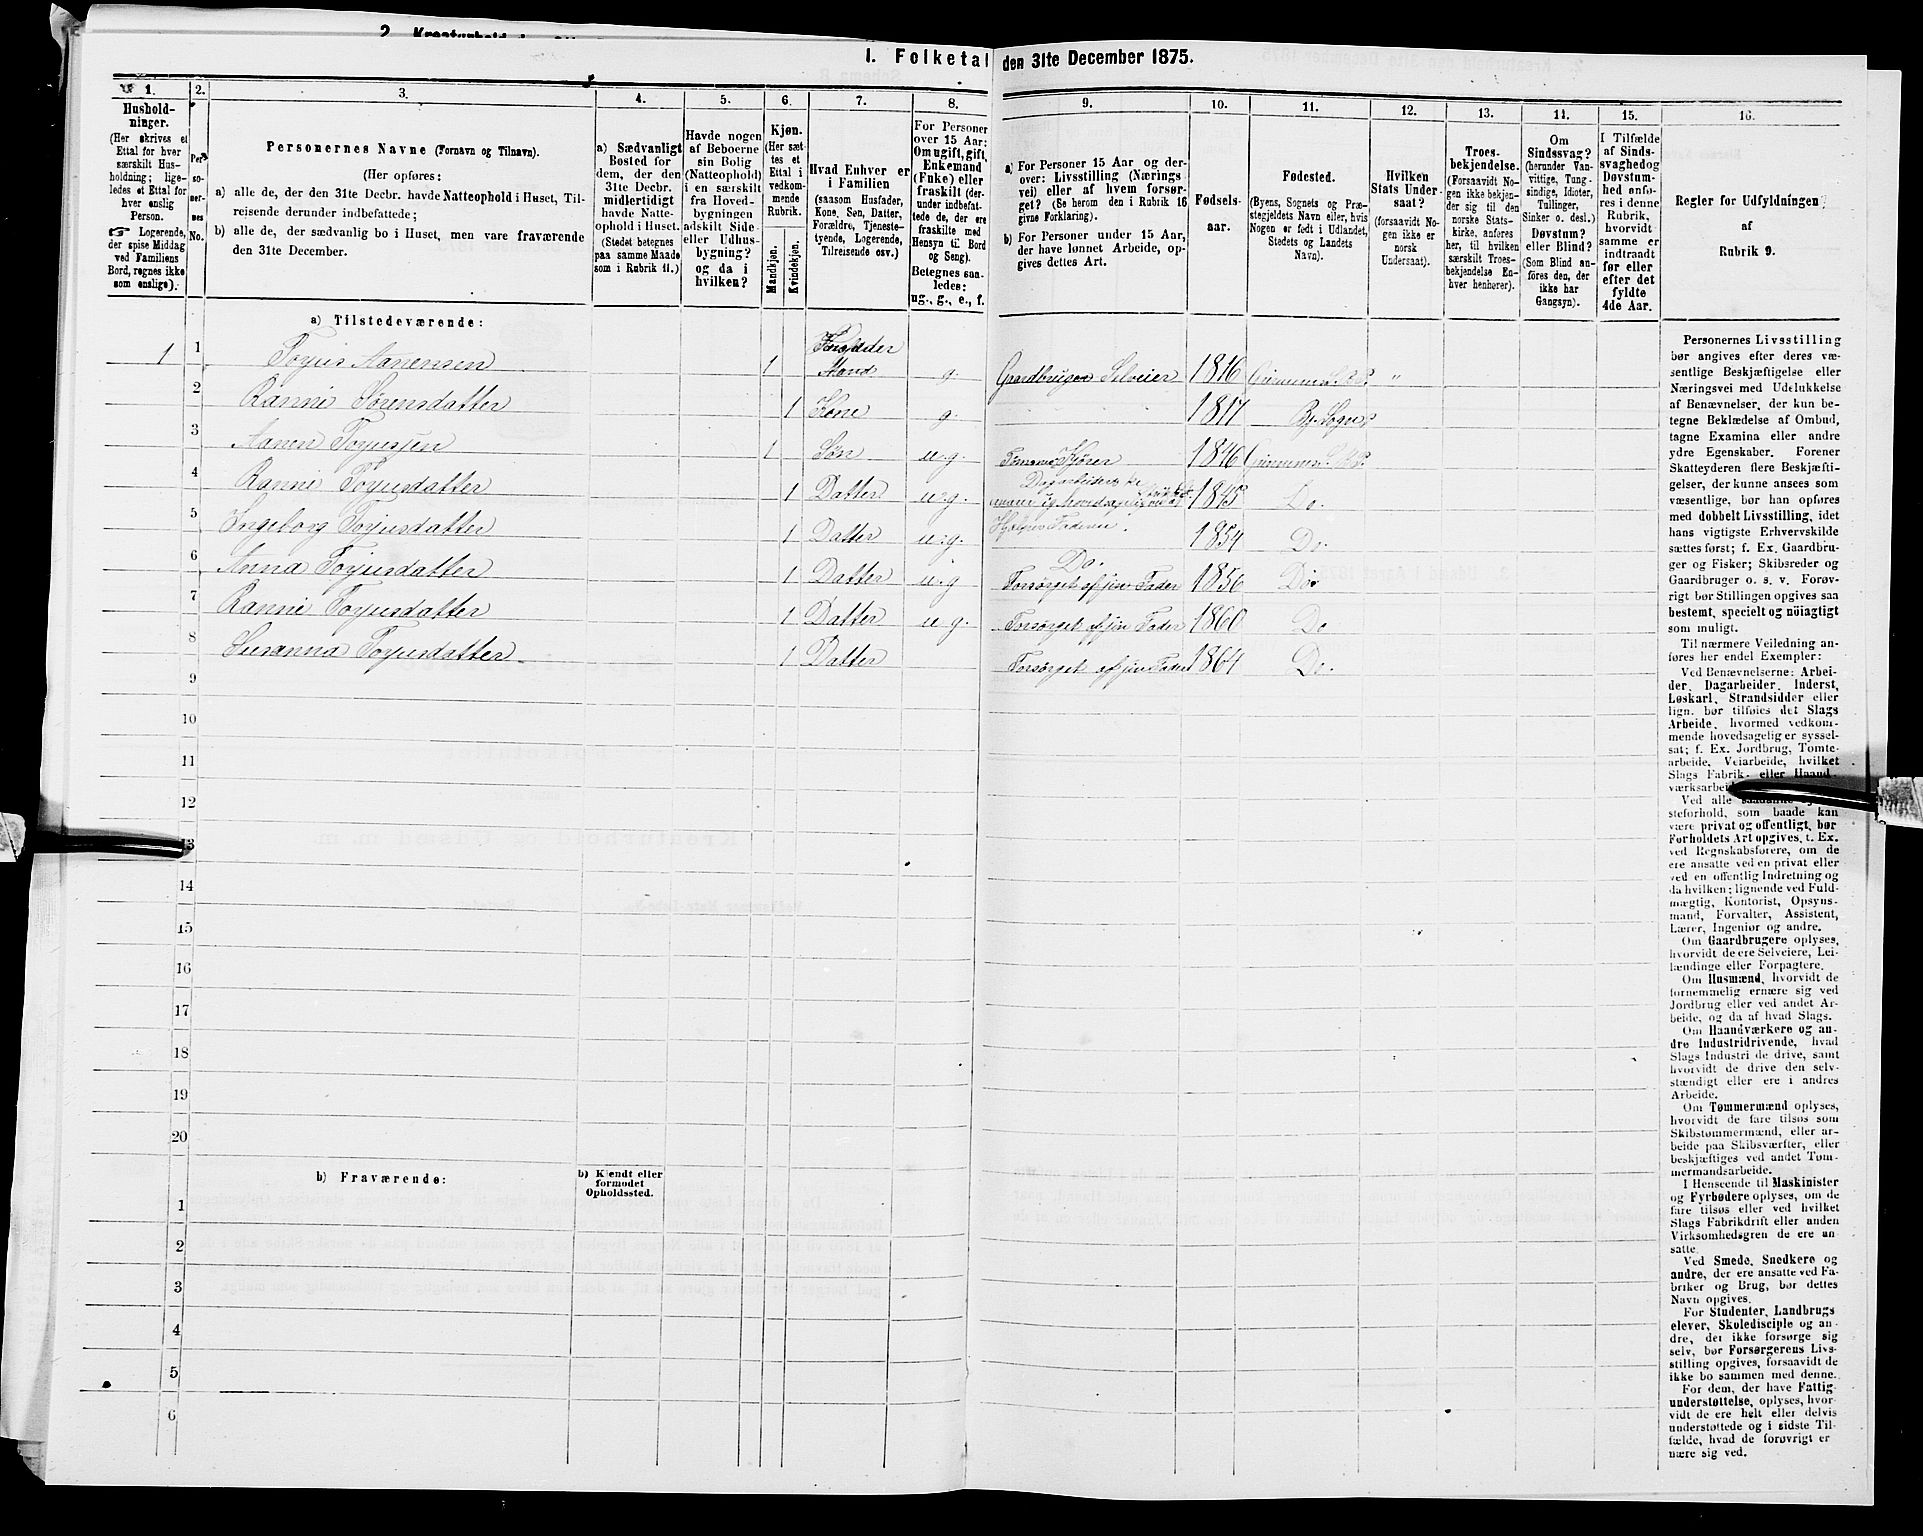 2. Kreaturhold
I. Folketal den 31te December 1875.
1.
2.
3.
4.
5.
6.
7.
8.
9.
10.
11.
12.
13.
14.
15.
16.
Hushold-
ninger.
(Her skrives et
Ettal for hver
særskilt Hus-
holdning; lige-
ledes et Ettal for
hver enslig
Person.
☞ Logerende,
der spise Middag
ved Familiens
Bord, regnes ikke
som enslige).
Per-
so-
ner-
nes
No.
Personernes Navne (Fornavn og Tilnavn).
(Her opføres:
a) alle de, der den 31te Decbr. havde Natteophold i Huset, Til-
reisende derunder indbefattede;
b) alle de, der sædvanlig bo i Huset, men vare fraværende
den 31te December.
a) Sædvanligt
Bosted for
dem, der den
31te Decbr.
midlertidigt
havde Natte-
ophold i Huset.
(Stedet betegnes
paa samme Maade
som i Rubrik 11.)
Havde nogen
af Beboerne
sin Bolig
(Natteophold)
i en særskilt
fra Hoved-
bygningen
adskilt Side-
eller Udhus-
bygning?
og da i
hvilken?
Kjøn.
(Her sæt-
tes et
Ettal i
vedkom-
mende
Rubrik.
Mandkjøn.
Kvindekjøn.
Hvad Enhver er
i Familien
(saasom Husfader,
Kone, Søn, Datter,
Forældre, Tjeneste-
tyende, Logerende,
Tilreisende osv.)
For Personer
over 15 Aar:
Om ugift, gift,
Enkemand
(Enke) eller
fraskilt (der-
under indbefat-
tede de, der ere
fraskilte med
Hensyn til Bord
og Seng).
Betegnes saa-
ledes:
ug., g., e., f.
a) For Personer 15 Aar og der-
over: Livsstilling (Nærings-
vei) eller af hvem forsør-
get? (Se herom den i Rubrik 16
givne Forklaring).
b) For Personer under 15 Aar,
der have lønnet Arbeide, op-
gives dettes Art.
Fødsels-
aar.
Fødested.
(Byens, Sognets og Præ-
stegjeldets Navn eller, hvis
Nogen er født i Udlandet,
Stedets og Landets
Navn).
Hvilken
Stats Under-
saat?
(forsaavidt No-
gen ikke er
norsk
Undersaat).
Troes-
bekjendelse.
(Forsaavidt No-
gen ikke bekjen-
der sig til den
norske Stats-
kirke, anføres
her, til hvilken
særskilt Troes-
bekjendelse En-
hver henhører).
Om
Sindssvag?
(herunder Van-
vittige, Tung-
sindige, Idioter,
Tullinger,
Sinker o. desl.)
Døvstum?
eller Blind?
(Som Blind an-
føres den, der
ikke har
Gangsyn).
I Tilfælde
af Sinds-
svaghed og
Døvstum-
hed anfø-
res i denne
Rubrik,
hvorvidt
samme er
indtraadt
før eller
efter det
fyldte
4de Aar.
Regler for Udfyldningen
af
Rubrik 9.
a) Tilstedeværende:
1 1 Torjus Aanensen 1 Husfader Mand g. Gaardbruger Selveier 1816 "
2 Ranni Sørensdatter 1 Kone g. 1817
3 Aanen Torjussen 1 Søn u.g. 1846
4 Ranni Torjusdatter 1 Datter u.g. 1845 Do.
5 Ingeborg Torjusdatter 1 Datter u.g. Hjelper Faderen. 1854 Do.
6 Anna Torjusdatter 1 Datter u.g Do. Forsørget af sin Fader 1856 Do
7 Ranni Torjusdatter 1 Datter u.g. Forsørget af sin Fader 1860 Do
8 Susanna Torjusdatter 1 Datter Forsørget af sin Fader 1864 Do.
9
10
11
12
13
14
15
16
17
18
19
20
b) Fraværende:
b) Kjendt eller
formodet
Opholdssted.
1
2
3
4
5
6
Personernes Livsstilling
bør angives efter deres væ-
sentlige Beskjæftigelse eller
Næringsvei med Udelukkelse
af Benævnelser, der kun be-
tegne Beklædelse af Ombud,
tagne Examina eller andre
ydre Egenskaber. Forener
Skatteyderen flere Beskjæfti-
gelser, der kunne ansees som
væsentlige, bør han opføres
med dobbelt Livsstilling, idet
hans vigtigste Erhvervskilde
sættes først; f. Ex. Gaardbru-
ger og Fisker; Skibsreder og
Gaardbruger o. s. v. Forøv-
rigt bør Stillingen opgives saa
bestemt, specielt og nöiagtigt
som muligt.
Til nærmere Veiledning an-
føres her endel Exempler:
Ved Benævnelserne: Arbei-
der, Dagarbeider, Inderst,
Løskarl, Strandsidder eller
lign. bør tilføies det Slags
Arbeide, hvormed vedkom-
mende hovedsagelig er syssel-
sat; f. Ex. Jordbrug, Tomte-
arbeide, Veiarbeide, hvilket
Slags Fabrik- eller Haand-
værksarbei
Ved alle
steforhold, som baade kan
være privat og offentligt, bør
Forholdets Art opgives, t. Ex.
ved Regnskabsførere, om de
ere ansatte ved en privat eller
ved en offentlig Indretning og
da hvilken; lignende ved Fuld-
mægtig, Kontorist, Opsyns-
mand, Forvalter, Assistent,
Lærer, Ingeniør og andre.
Om Gaardbrugere oplyses,
hvorvidt de ere Selveiere, Lei-
lændinge eller Forpagtere.
Om Husmænd, hvorvidt de
fornemmelig ernære sig ved
Jordbrug eller ved andet Ar-
beide, og da af hvad Slags.
Om Haandværkere og an-
dre Industridrivende, hvad
Slags Industri de drive, samt
hvorvidt de drive den selv-
stændigt eller ere i andres
Arbeide.
Om Tømmermænd oplyses,
hvorvidt de fare tilsøs som
Skibstømmermænd, eller ar-
beide paa Skibsværfter, eller
beskjæftiges ved andet Tøm-
mermandsarbeide.
I Henseende til Maskinister
og Fyrbødere oplyses, om de
fare tilsøs eller ved hvilket
Slags Fabrikdrift eller anden
Virksomhedsgren de ere an-
satte.
Ved Smede, Snedkere og
andre, der ere ansatte ved Fa-
briker og Brug, bør dettes
Navn opgives.
For Studenter, Landbrugs-
elever, Skoledisciple og an-
dre, der ikke forsørge sig
selv, bør Forsørgerens Livs-
stilling opgives, forsaavidt de
ikke bo sammen med denne.
For dem, der have Fattig-
understøttelse, oplyses, hvor-
vidt de ere helt eller delvis
understøttede og i sidste Til-
fælde, hvad de forøvrigt er-
nære sig ved.